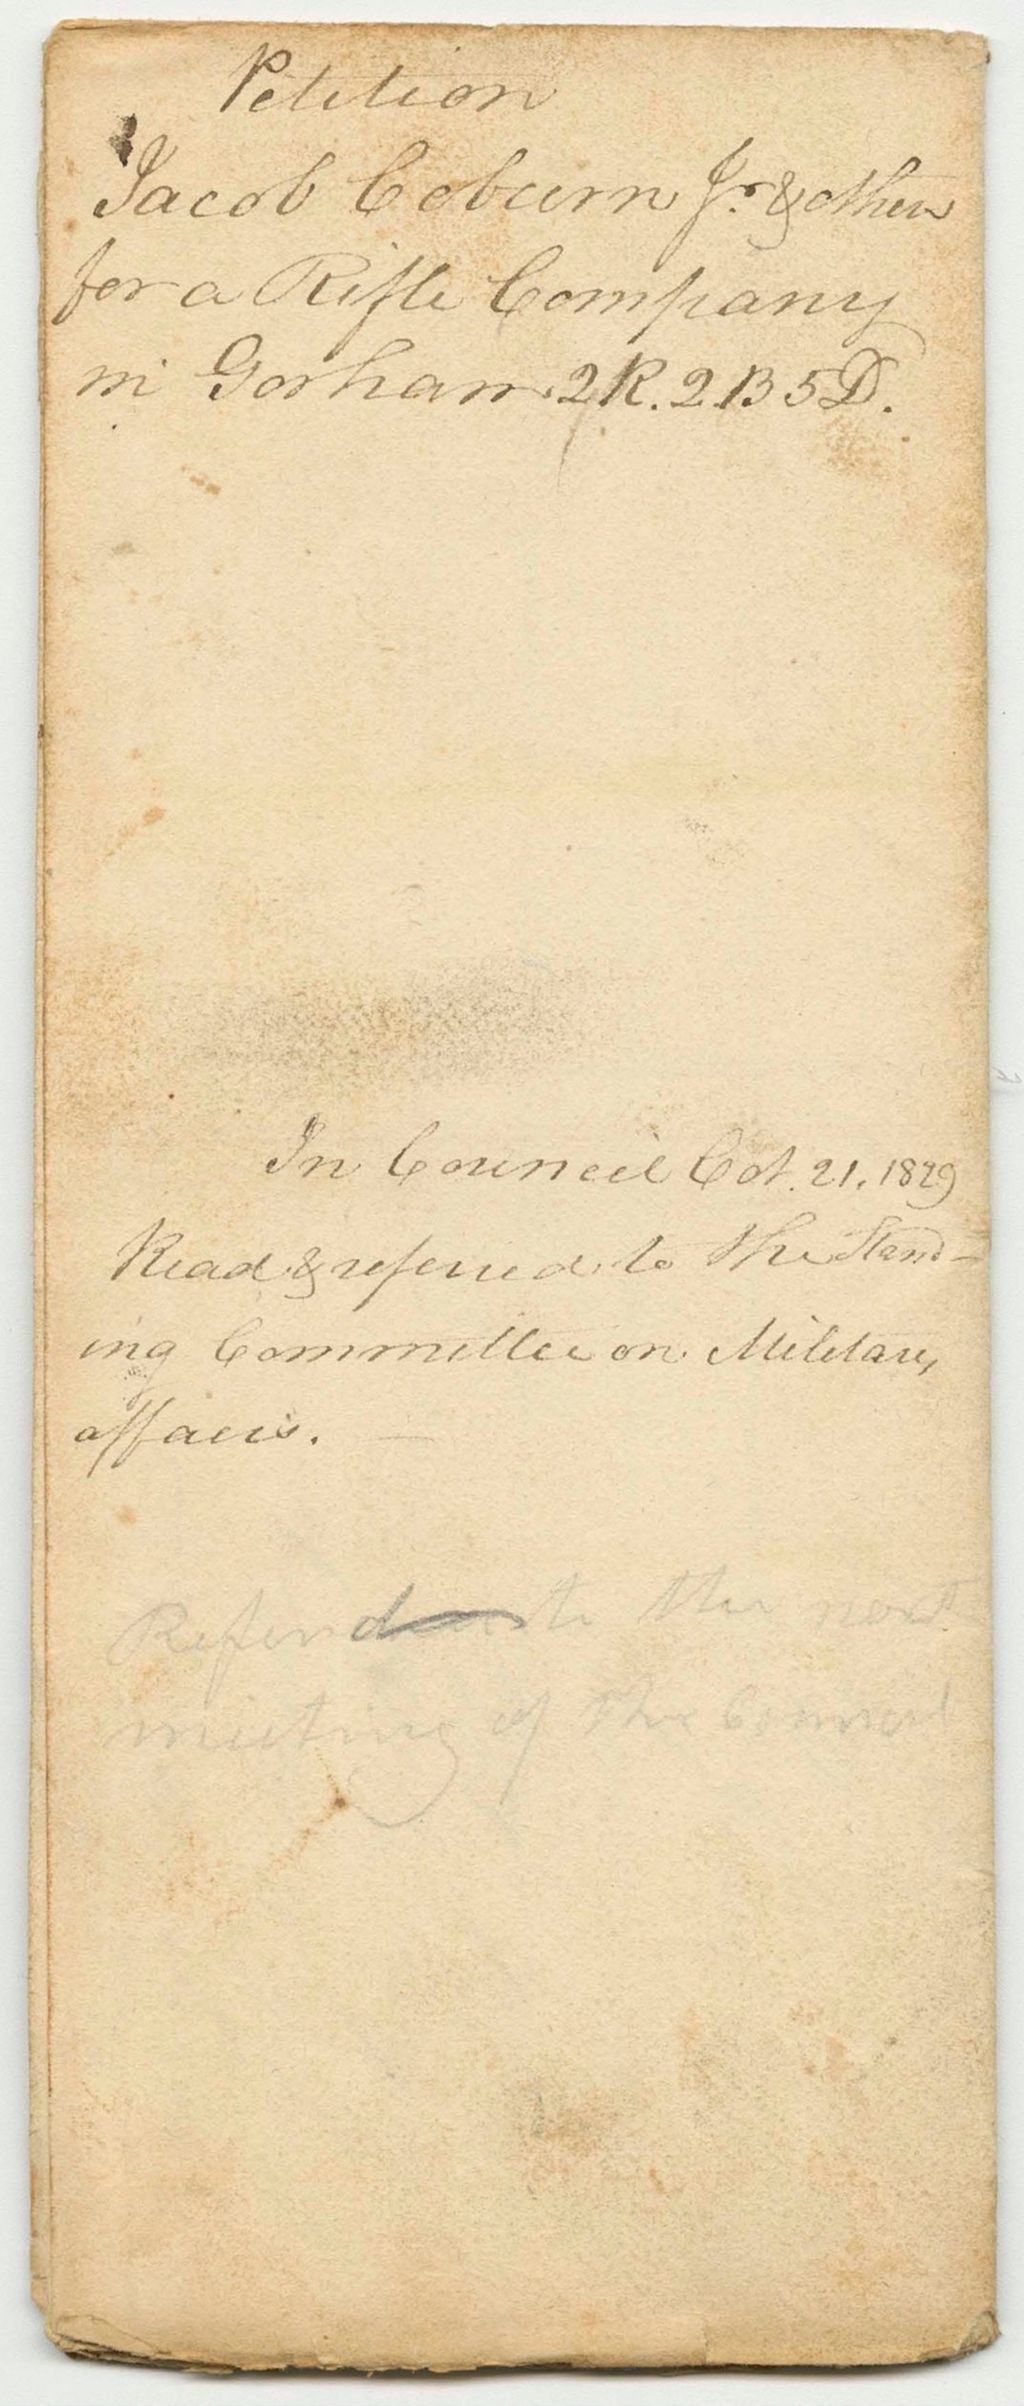 Petition
Jacob Coburn Jr. & others
for a Rifle Company
in Gorham 2R. 2B 5D.
In Council Oct. 21. 1829
Read & referred to the Stand-
ing Committee on Military
affairs.
Referd to the next
meeting of the Council